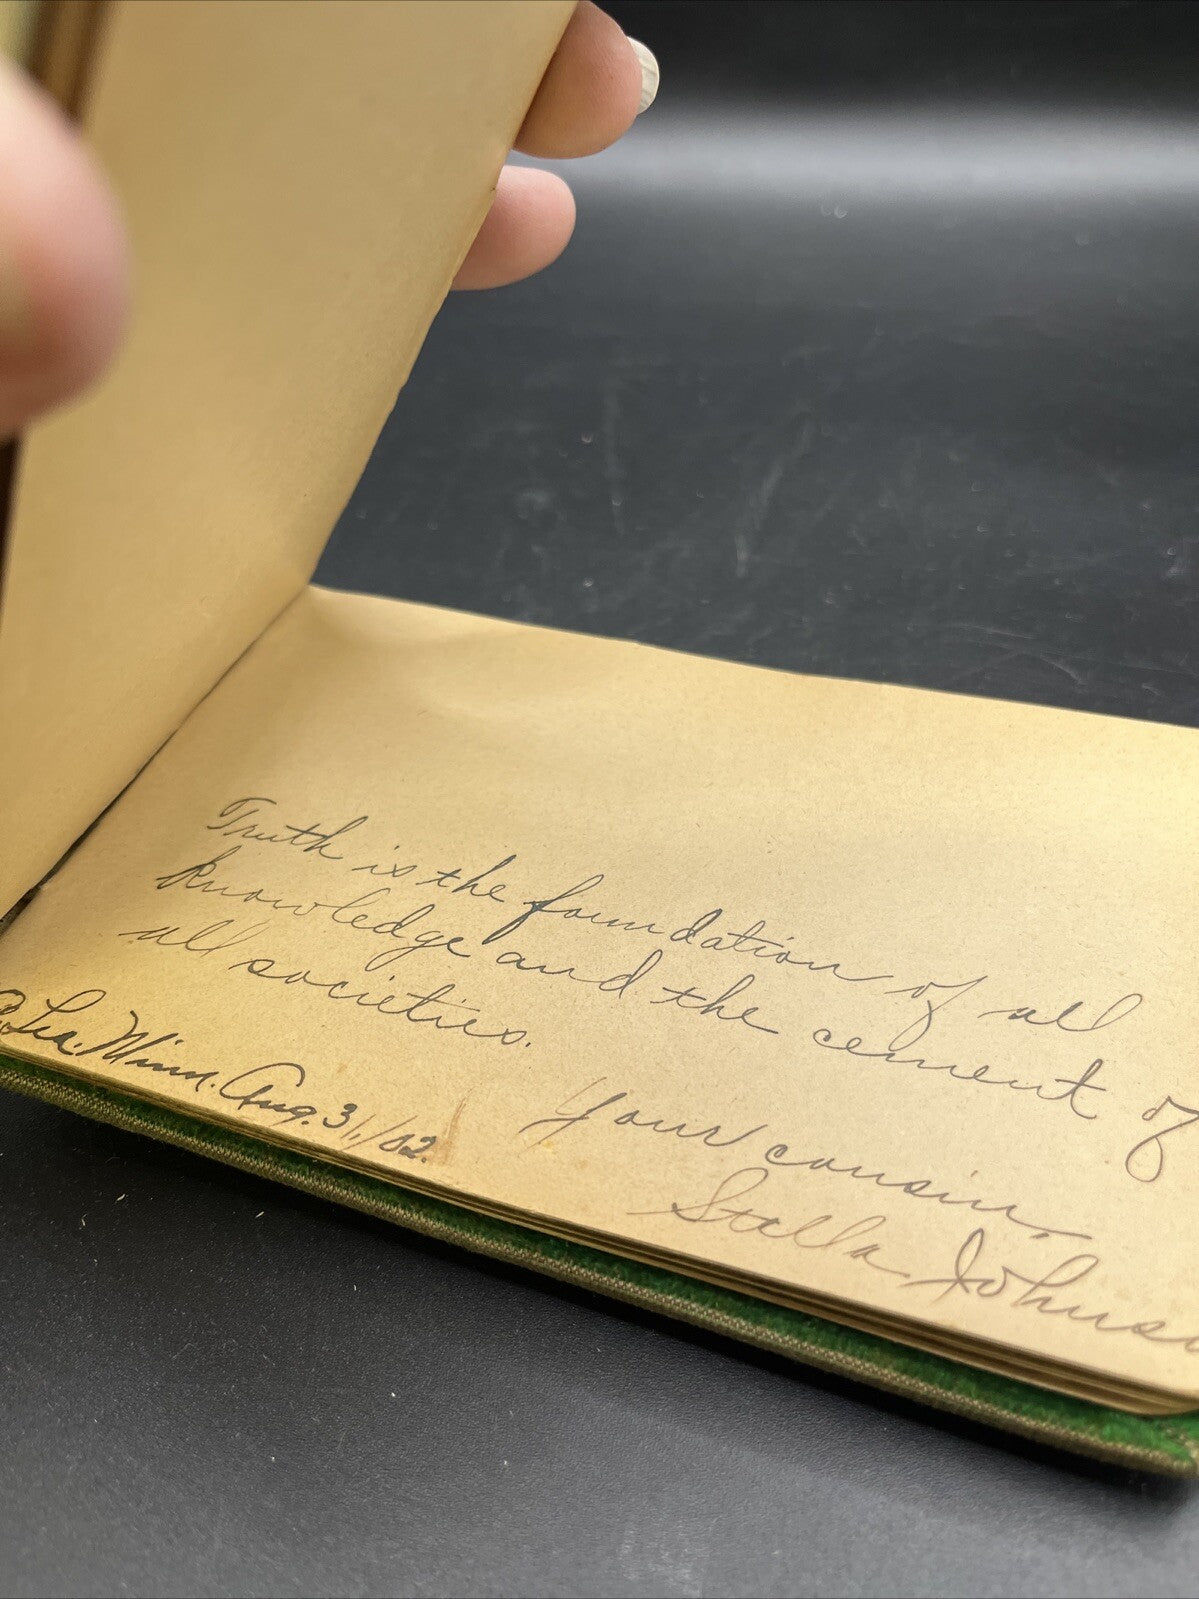 Truth is the foundation of all
knowledge and the cement of
all societies.
Your cousin,
Stella Johns
Lea. Minn. Aug. 31, /02.